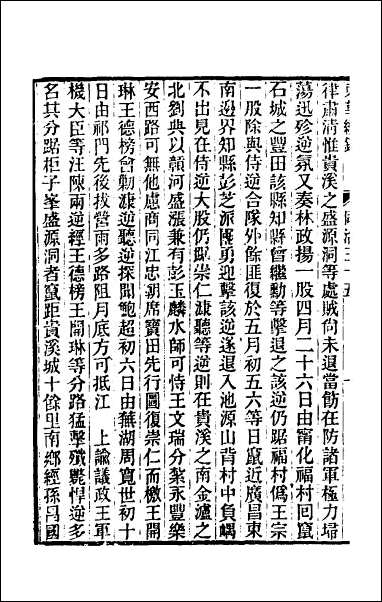 律肅清惟貴溪之盛源洞等處賊向未退當飭在防諸軍極力埽
蕩迅殄逆氛又奏林政揚一股四月二十六日由甯化福村回竄
石城之豐田該縣知縣曾繼勳等擊退之該逆仍踞福村僞王宗
一股除與侍逆合隊外餘匪復於五月初五六等日竄近廣昌東
南邊界知縣彭芝派團勇迎擊該逆遂退入池源山背村中負嵎
不出見在侍逆大股仍踞崇仁溓聽等逆則在貴溪之南金瀘之
北劉典以贛河盛漲兼有彭玉麟水師可恃王文瑞分紮永豐樂
安西路可無他慮商同江忠朝席寶田先行圖復崇仁而檄王開
琳王德榜會勦溓逆聽逆探聞鮑超初六日由蕪湖周寬世初十
日由祁門先後拔營雨多路阻月底方可抵江　上諭議政王軍
機大臣等汪陳兩逆經王德榜王開琳等分路猛擊殲斃悍逆多
名其分踞柜子峯盛源洞者竄距貴溪城十餘里南鄉經孫昌國